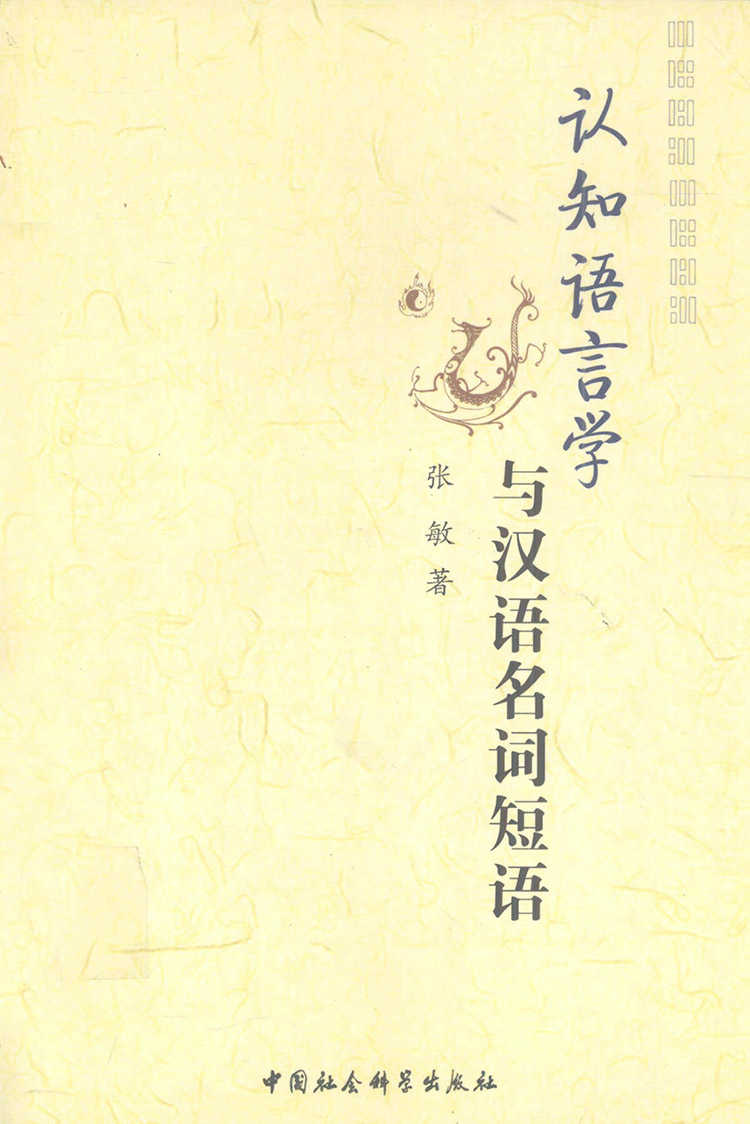 认知语言学
与汉语名词短语
张敏著
中国社会科学出版社